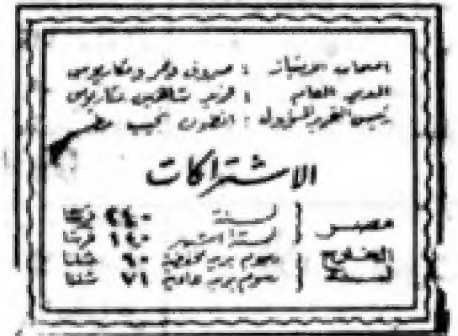 اصحاب الامتياز : صروف ونمر ومكاريوس
المدير العام : فريد شاهين مكاريوس
رئيس التحرير المسؤول : انطون نجيب مطر
الاشتراكات
مصر لسنة ٢٤٠ قرشا
لستة اشهر ١٢٠ قرشا
الخارج رسوم بريد ٩٠ شلنا
لسنة رسوم بريد عادي ٧١ شلنا